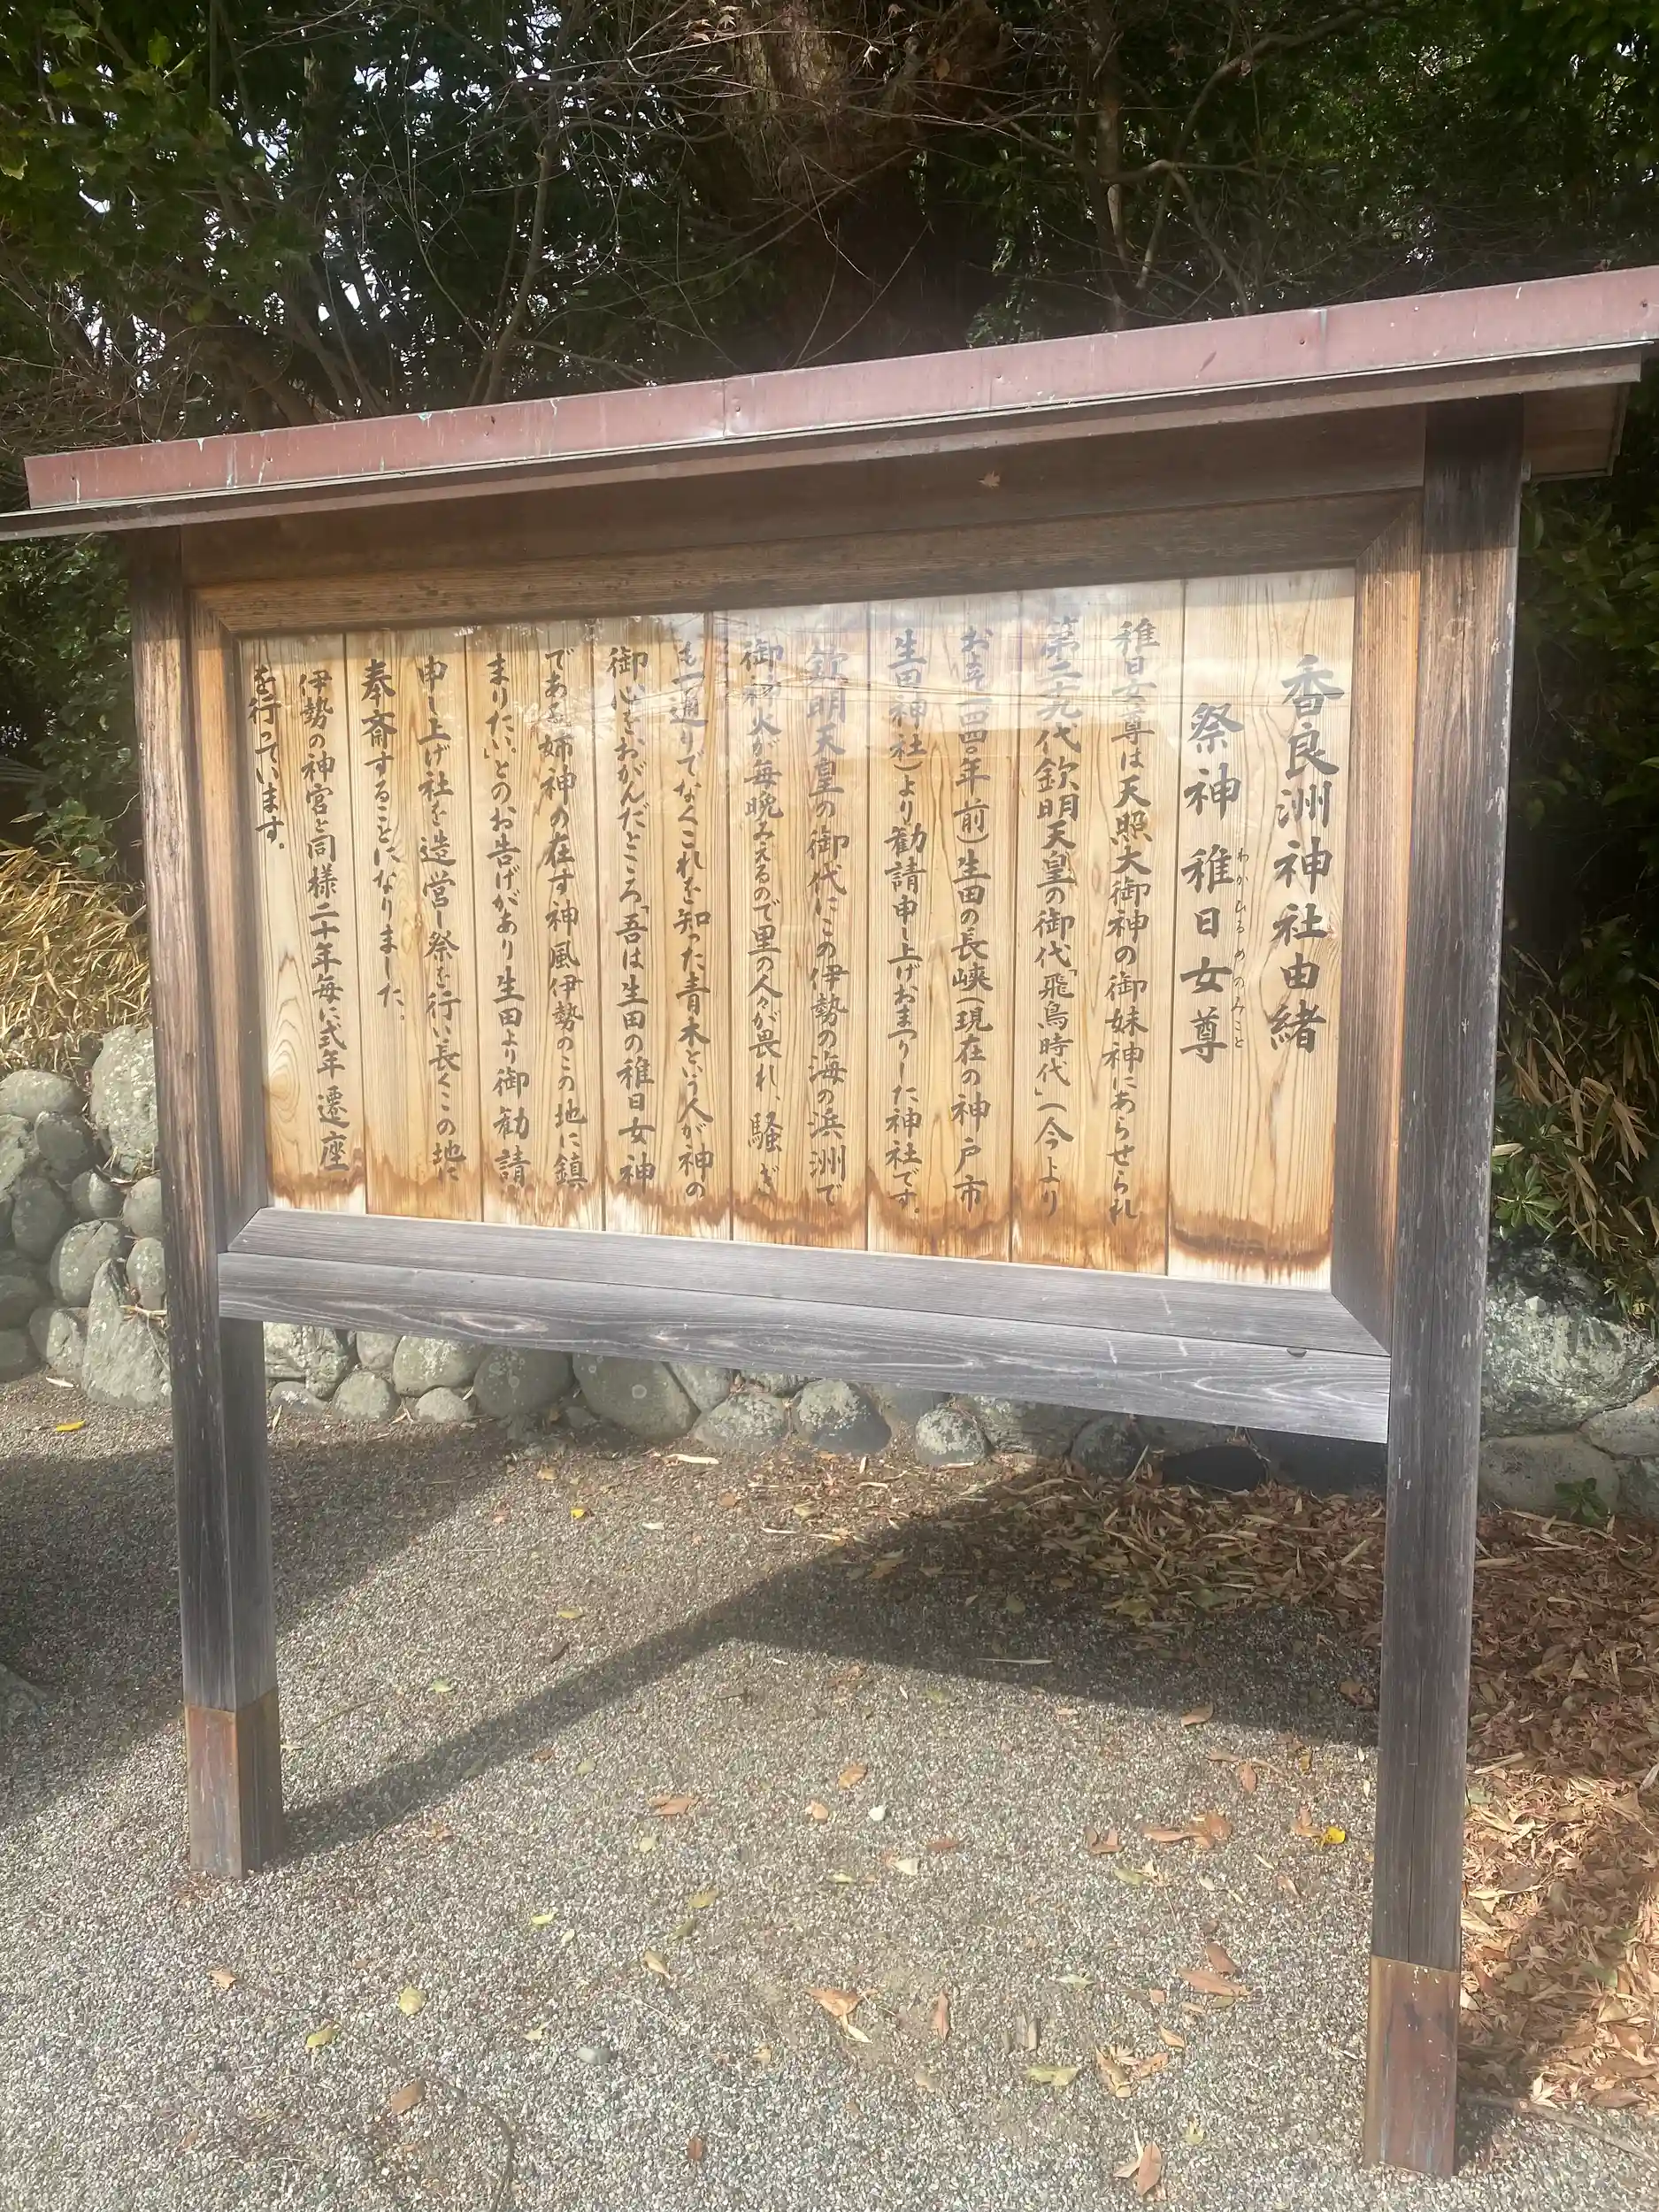 香良洲神社由緒
祭神 稚日女尊
わかひるめのみこと
稚日女尊は天照大御神の御妹神にあらせられ
第二十九代欽明天皇の御代「飛鳥時代」(今より
およそ一四四〇年前)生田の長峡(現在の神戸市
生田神社)より勧請申し上げおまつりした神社です。
欽明天皇の御代にこの伊勢の海の浜洲で
御神火が毎晩みえるので里の人々が畏れ、騒ぎ
も一通りでなくこれを知った青木という人が神の
御心をおがんだところ「吾は生田の稚日女神
である姉神の在す神風伊勢のこの地に鎮
まりたい」とのお告げがあり生田より御勧請
申し上げ社を造営し祭を行い長くこの地に
奉斎することになりました。
伊勢の神宮と同様二十年毎に式年遷座
を行っています。